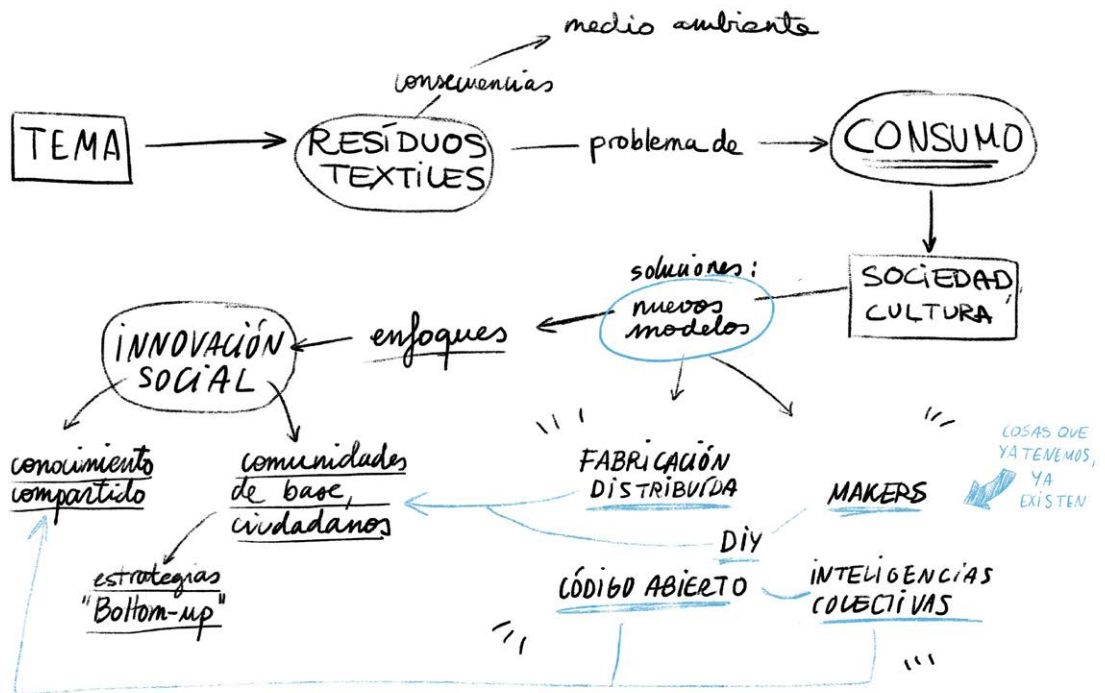 medio ambiente
consecuencias
TEMA
RESÍDUOS
TEXTILES
problema de
CONSUMO
SOCIEDAD,
CULTURA
soluciones:
nuevos
modelos
enfoques
INNOVACIÓN
SOCIAL
conocimiento
compartido
comunidades
de base,
ciudadanos
estrategias
"Bottom-up"
FABRICACIÓN
DISTRIBUÍDA
MAKERS
COSAS QUE
YA TENEMOS,
YA
EXISTEN
DIY
CÓDIGO ABIERTO
INTELIGENCIAS
COLECTIVAS